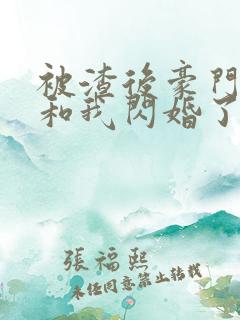 被渣後豪門
和我閃婚了
張福熙
未任同意禁止转载